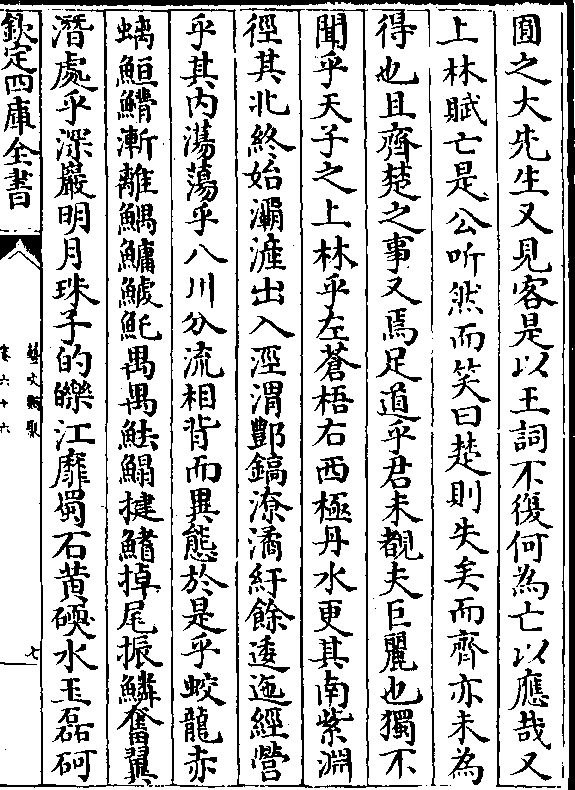 囿之大先生又見客是以王詞不復何為亡以應哉又
上林賦亡是公听然而笑曰楚則失矣而齊亦未為
得也且齊楚之事又焉足道乎君未覩夫巨麗也獨不
聞乎天子之上林乎左蒼梧右西極丹水更其南紫淵
徑其北終始灞滻出入涇渭酆鎬潦潏紆餘逶迤經營
乎其内蕩蕩乎八川分流相背而異態於是乎蛟龍赤
螭䱭䲛漸離鰅鱅鰬魠禺禺魼鰨揵鰭掉尾振鱗奮翼
潛處乎深巖明月珠子的皪江靡蜀石黄碝水玉磊砢
欽定四庫全書
藝文類聚
卷六十六
七